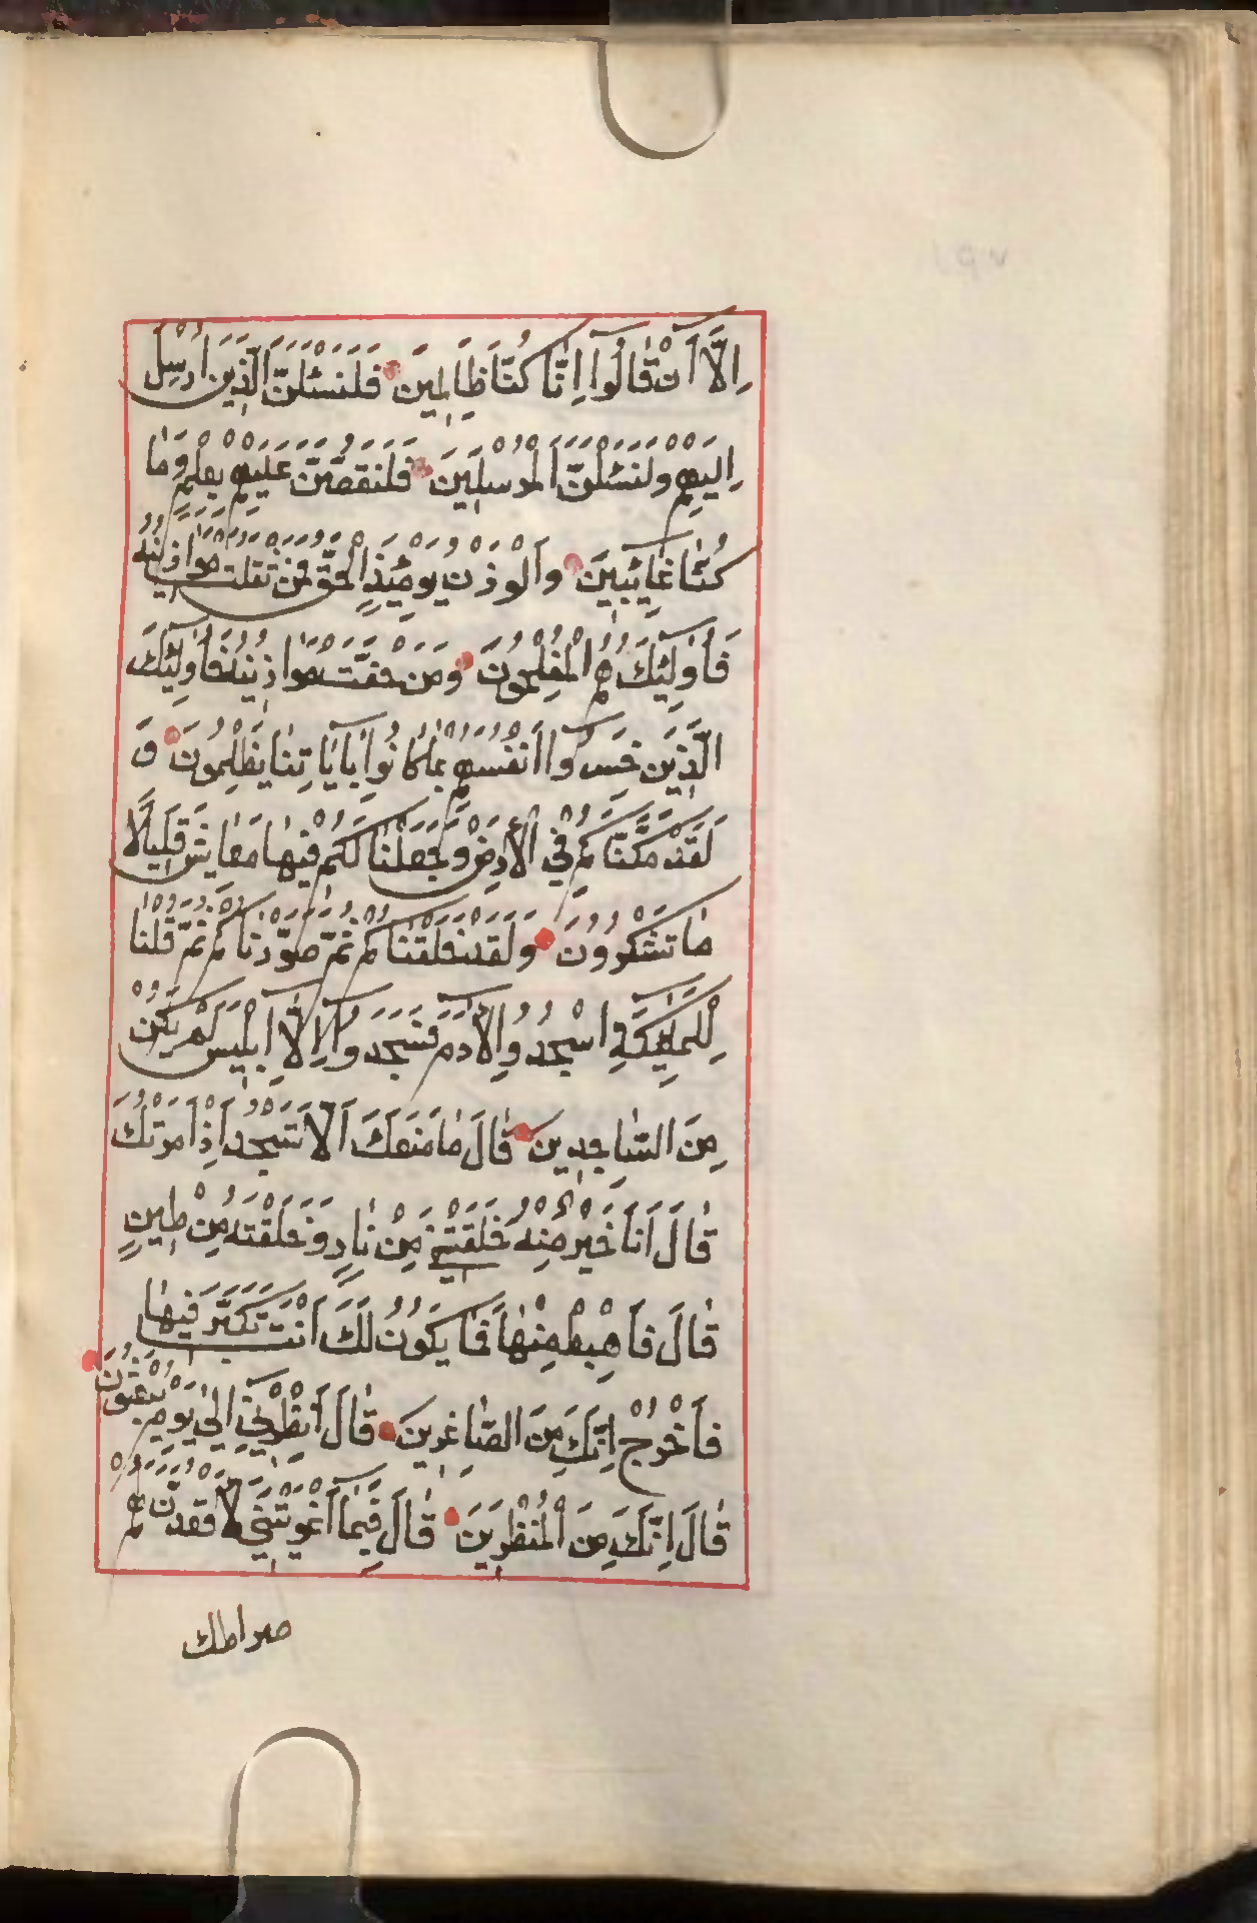 اِلَّا اَنْ قَالُوا اِنَّا كُنَّا ظَالِمِينَ فَلَنَسْئَلَنَّ الَّذِينَ اُرْسِلَ
اِلَيْهِمْ وَلَنَسْئَلَنَّ الْمُرْسَلِينَ فَلَنَقُصَّنَّ عَلَيْهِمْ بِعِلْمٍ وَمَا
كُنَّا غَائِبِينَ وَالْوَزْنُ يَوْمَئِذٍ الْحَقُّ فَمَنْ ثَقُلَتْ مَوَازِينُهُ
فَاُولٰئِكَ هُمُ الْمُفْلِحُونَ وَمَنْ خَفَّتْ مَوَازِينُهُ فَاُولٰئِكَ
الَّذِينَ خَسِرُوا اَنْفُسَهُمْ بِمَا كَانُوا بِاٰيَاتِنَا يَظْلِمُونَ وَ
لَقَدْ مَكَّنَّاكُمْ فِي الْاَرْضِ وَجَعَلْنَا لَكُمْ فِيهَا مَعَايِشَ قَلِيلًا
مَا تَشْكُرُونَ وَلَقَدْ خَلَقْنَاكُمْ ثُمَّ صَوَّرْنَاكُمْ ثُمَّ قُلْنَا
لِلْمَلٰئِكَةِ اسْجُدُوا لِاٰدَمَ فَسَجَدُوا اِلَّا اِبْلِيسَ لَمْ يَكُنْ
مِنَ السَّاجِدِينَ قَالَ مَا مَنَعَكَ اَلَّا تَسْجُدَ اِذْ اَمَرْتُكَ
قَالَ اَنَا خَيْرٌ مِنْهُ خَلَقْتَنِي مِنْ نَارٍ وَخَلَقْتَهُ مِنْ طِينٍ
قَالَ فَاهْبِطْ مِنْهَا فَمَا يَكُونُ لَكَ اَنْ تَتَكَبَّرَ فِيهَا
فَاخْرُجْ اِنَّكَ مِنَ الصَّاغِرِينَ قَالَ اَنْظِرْنِي اِلٰى يَوْمِ يُبْعَثُونَ
قَالَ اِنَّكَ مِنَ الْمُنْظَرِينَ قَالَ فَبِمَا اَغْوَيْتَنِي لَاَقْعُدَنَّ لَهُمْ
صراطك